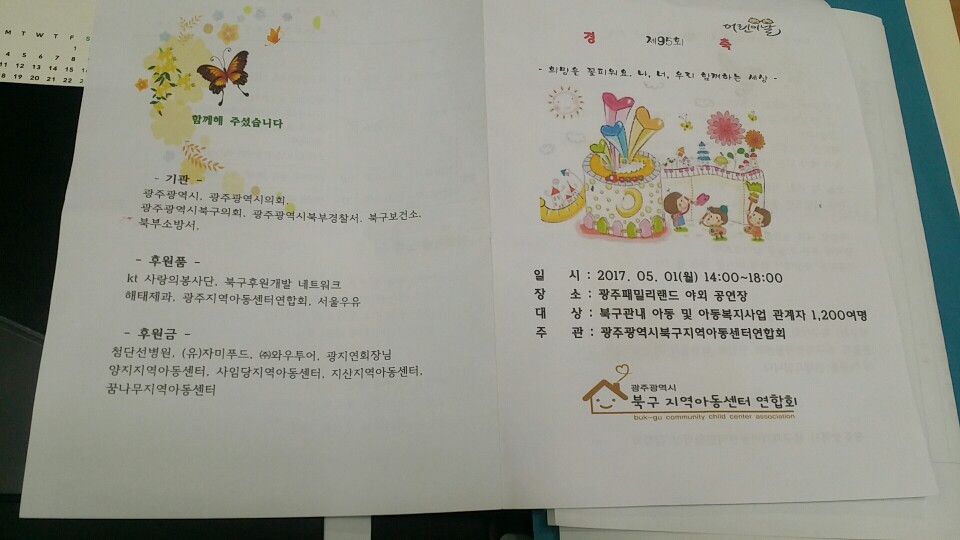 M T W T F S
4 5 6 7 8
11 12 13 14 15
18 19 20 21 22
함께해 주셨습니다
- 기관 -
광주광역시, 광주광역시의회,
광주광역시북구의회, 광주광역시북부경찰서, 북구보건소,
북부소방서,
- 후원품 -
kt 사랑의봉사단, 북구후원개발 네트워크
해태제과, 광주지역아동센터연합회, 서울우유
- 후원금 -
첨단선병원, (유)자미푸드, ㈜와우투어, 광지연회장님
양지지역아동센터, 사임당지역아동센터, 지산지역아동센터,
꿈나무지역아동센터
어린이날
경 제95회 축
- 희망을 꽃피워요. 나, 너, 우리 함께하는 세상 -
일 시 : 2017. 05. 01(월) 14:00~18:00
장 소 : 광주패밀리랜드 야외 공연장
대 상 : 북구관내 아동 및 아동복지사업 관계자 1,200여명
주 관 : 광주광역시북구지역아동센터연합회
광주광역시
북구 지역아동센터 연합회
buk-gu community child center association